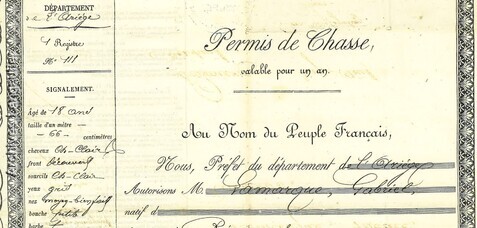 DÉPARTEMENT
de l'Ariège
1 Registre
N° 111
SIGNALEMENT.
Agé de 18 ans
taille d'un mètre
66 centimètres
cheveux ch. clair
front découvert
sourcils ch. clair
yeux gris
nez moy.
bouche petite
barbe
Permis de Chasse,
valable pour un an.
Au Nom du Peuple Français,
Nous, Préfet du département de l'Ariège
Autorisons M. Lamarque, Gabriel,
natif d